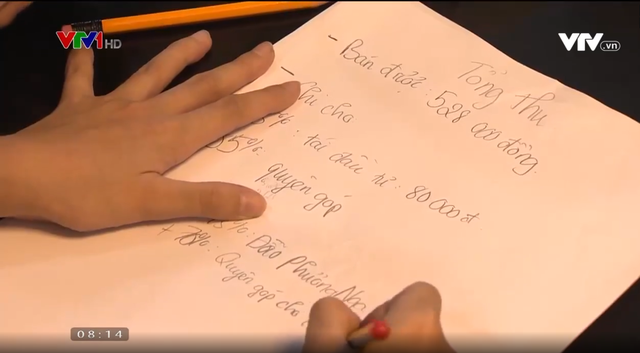 VTV1 HD
VTV.vn
Tổng thu
- Bán được: 528 000 đồng.
- Chi cho
5%: tái đầu tư: 80 000 đ
55%: quyên góp
5%: Đào Phương
+ 70%: Quyên góp cho
08:14